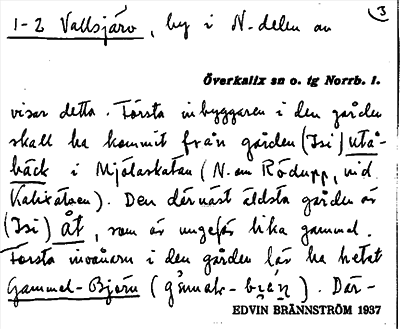 3
1-2 Vallsjärv, by i N-delen av
Överkalix sn o. tg Norrb. l.
visar detta. Första inbyggaren i den gården
skall ha kommit från gården (Isi) utå-
bäck i Mjölaskatan (N. om Rödupp, vid
Kalixälven). Den därnäst äldsta gården är
(Isi) åt, som är ungefär lika gammal.
Första invånarn i den gården lär ha hetat
Gammel-Björn (
). Där-
EDVIN BRÄNNSTRÖM 1937